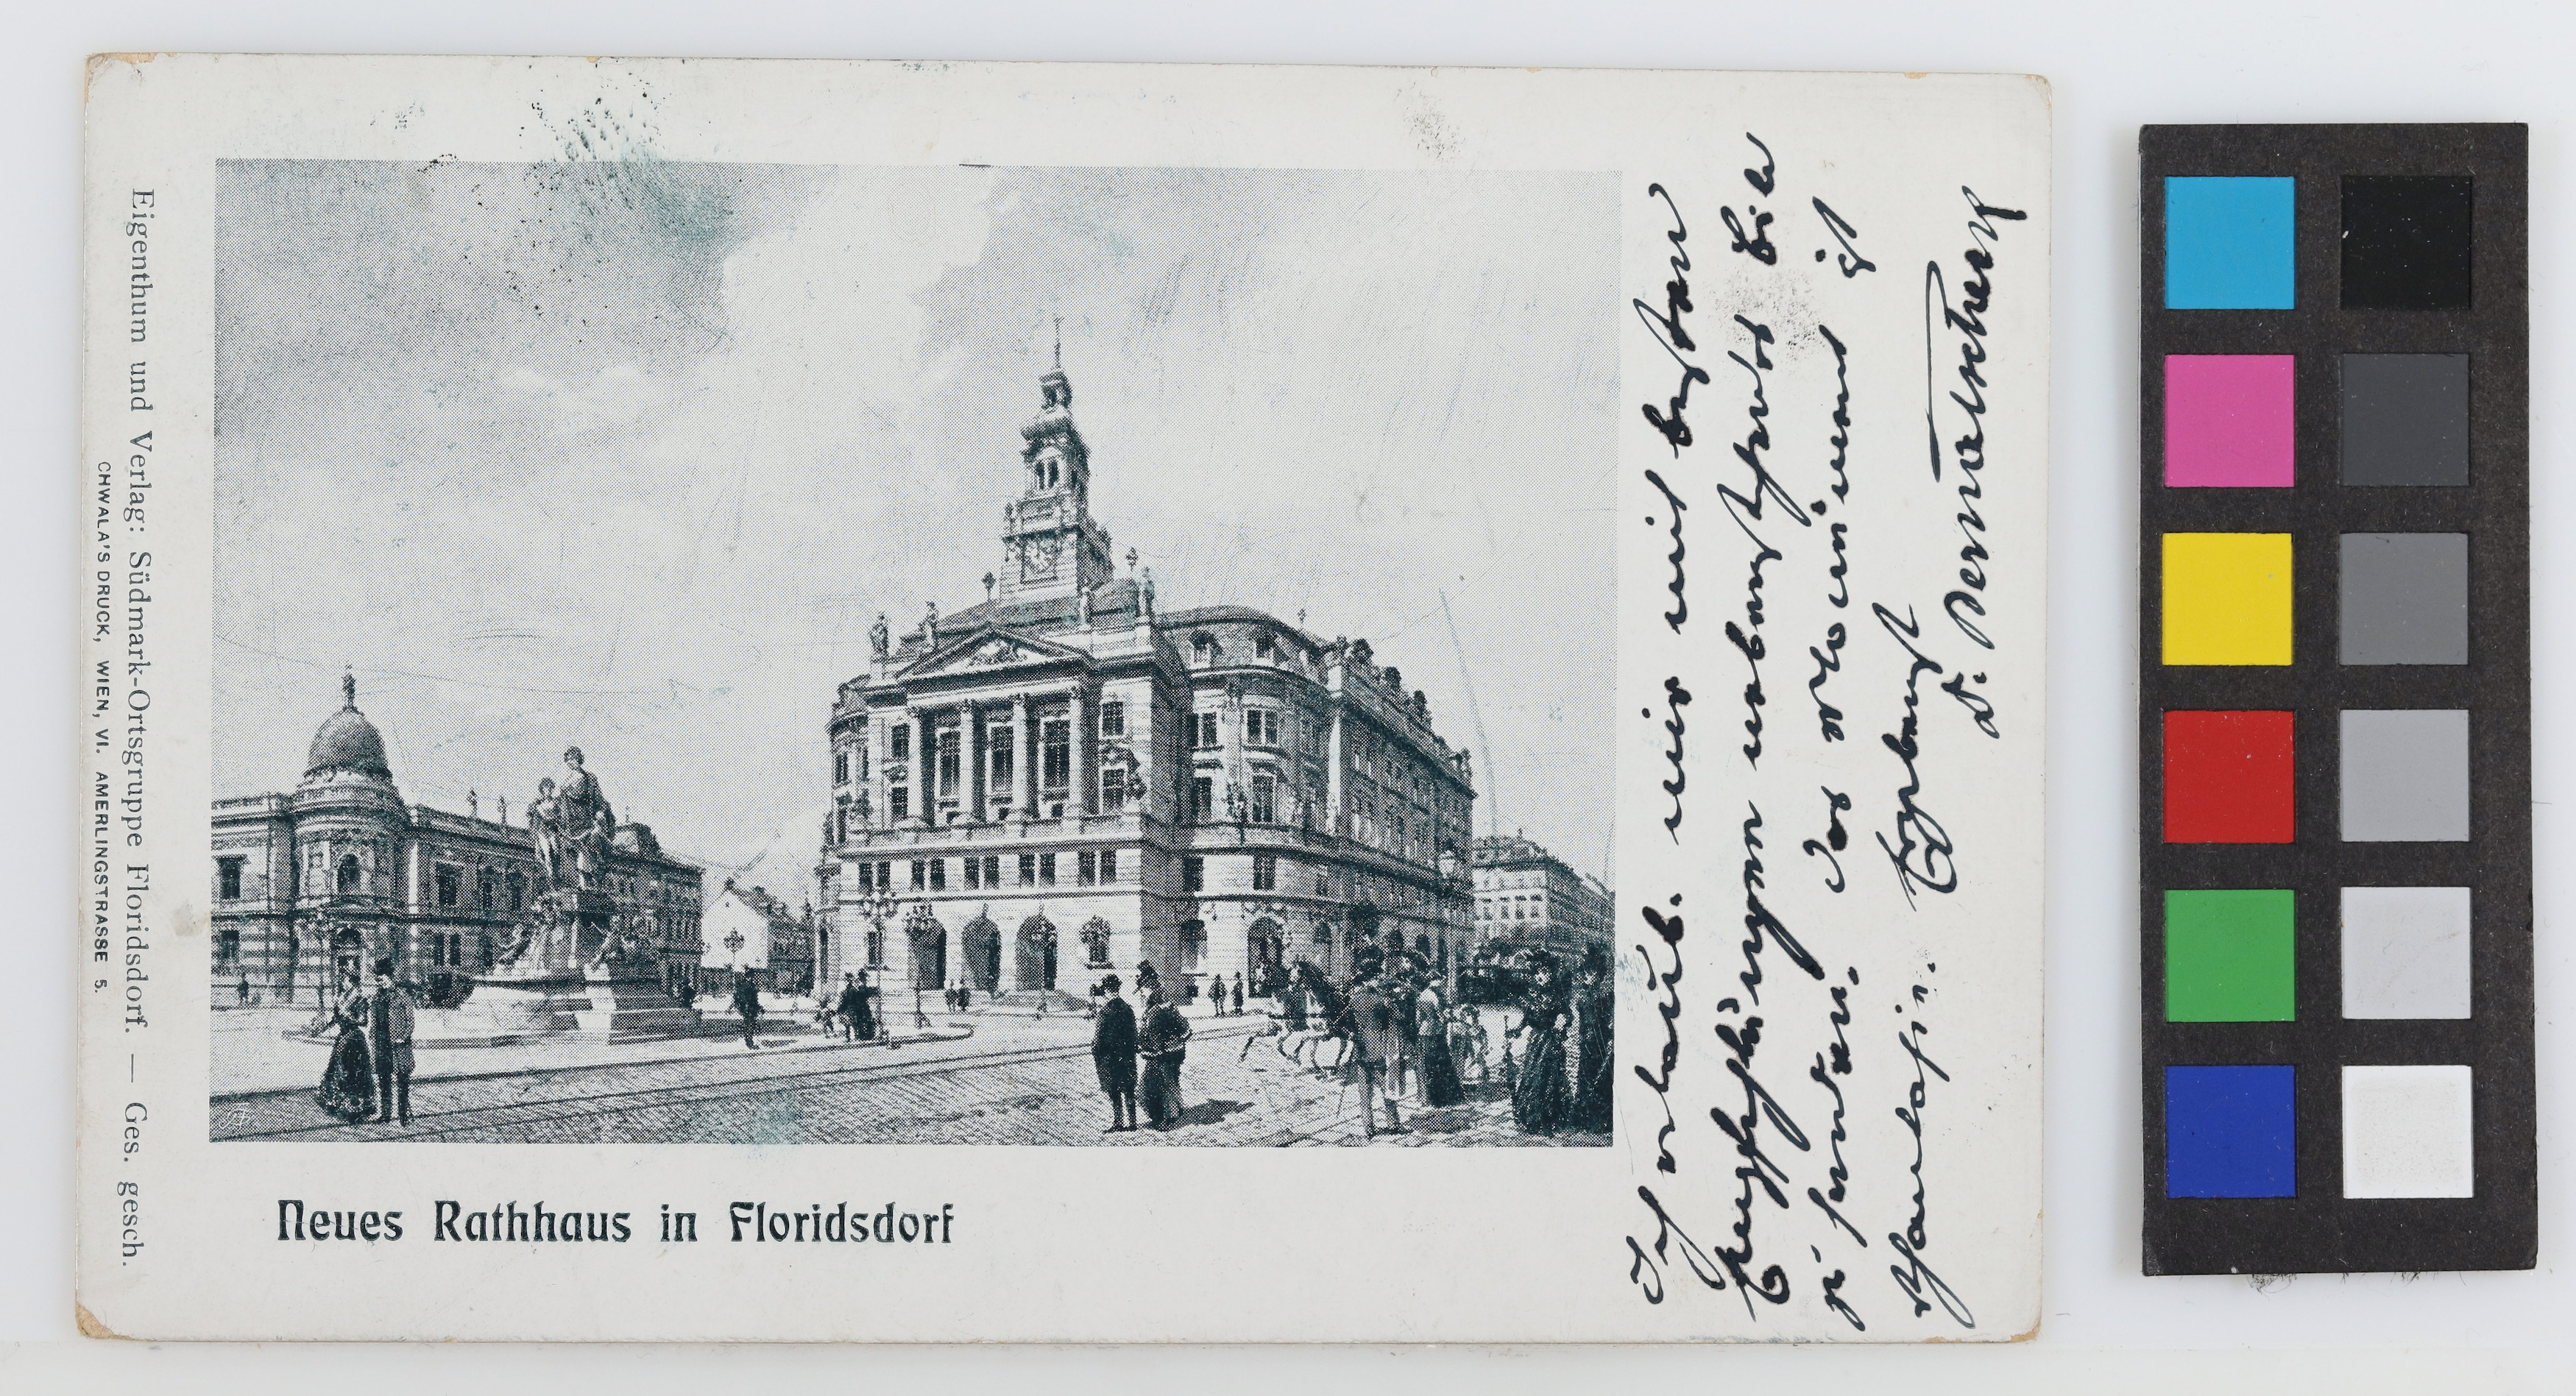 Eigenthum und Verlag: Südmark-Ortsgruppe Floridsdorf. — Ges. gesch.
CHWALA'S DRUCK, WIEN, VI. AMERLINGSTRASSE 5.
Neues Rathhaus in Floridsdorf
Ich erlaube mir mit besten
Empfehlungen Bild
zu senden. Das Monument ist
Phantasie. Ergebenst